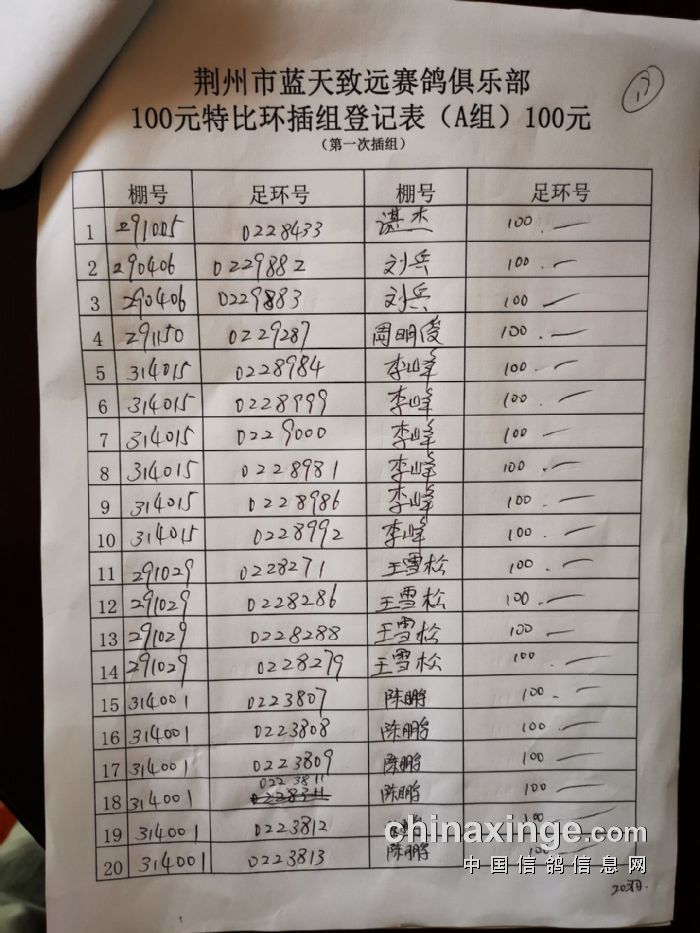 17
荆州市蓝天致远赛鸽俱乐部
100元特比环插组登记表（A组）100元
（第一次插组）
棚号 足环号 棚号 足环号
1 291005 0228433 谌杰 100.—
2 290406 0229882 刘兵 100.—
3 290406 0229883 刘兵 100—
4 291150 0229287 周明俊 100.—
5 314015 0228984 李峰 100.—
6 314015 0228999 李峰 100.—
7 314015 0229000 李峰 100.—
8 314015 0228981 李峰 100.—
9 314015 0228986 李峰 100.—
10 314015 0228992 李峰 100.—
11 291029 0228271 王雪松 100.—
12 291029 0228286 王雪松 100.—
13 291029 0228288 王雪松 100—
14 291029 0228279 王雪松 100.—
15 314001 0223807 陈鹏 100.—
16 314001 0223808 陈鹏 100.—
17 314001 0223809 陈鹏 100.—
18 314001 0223811 陈鹏 100.—
19 314001 0223812
20 314001 0223813 陈鹏
chinaxinge.com
中国信鸽信息网